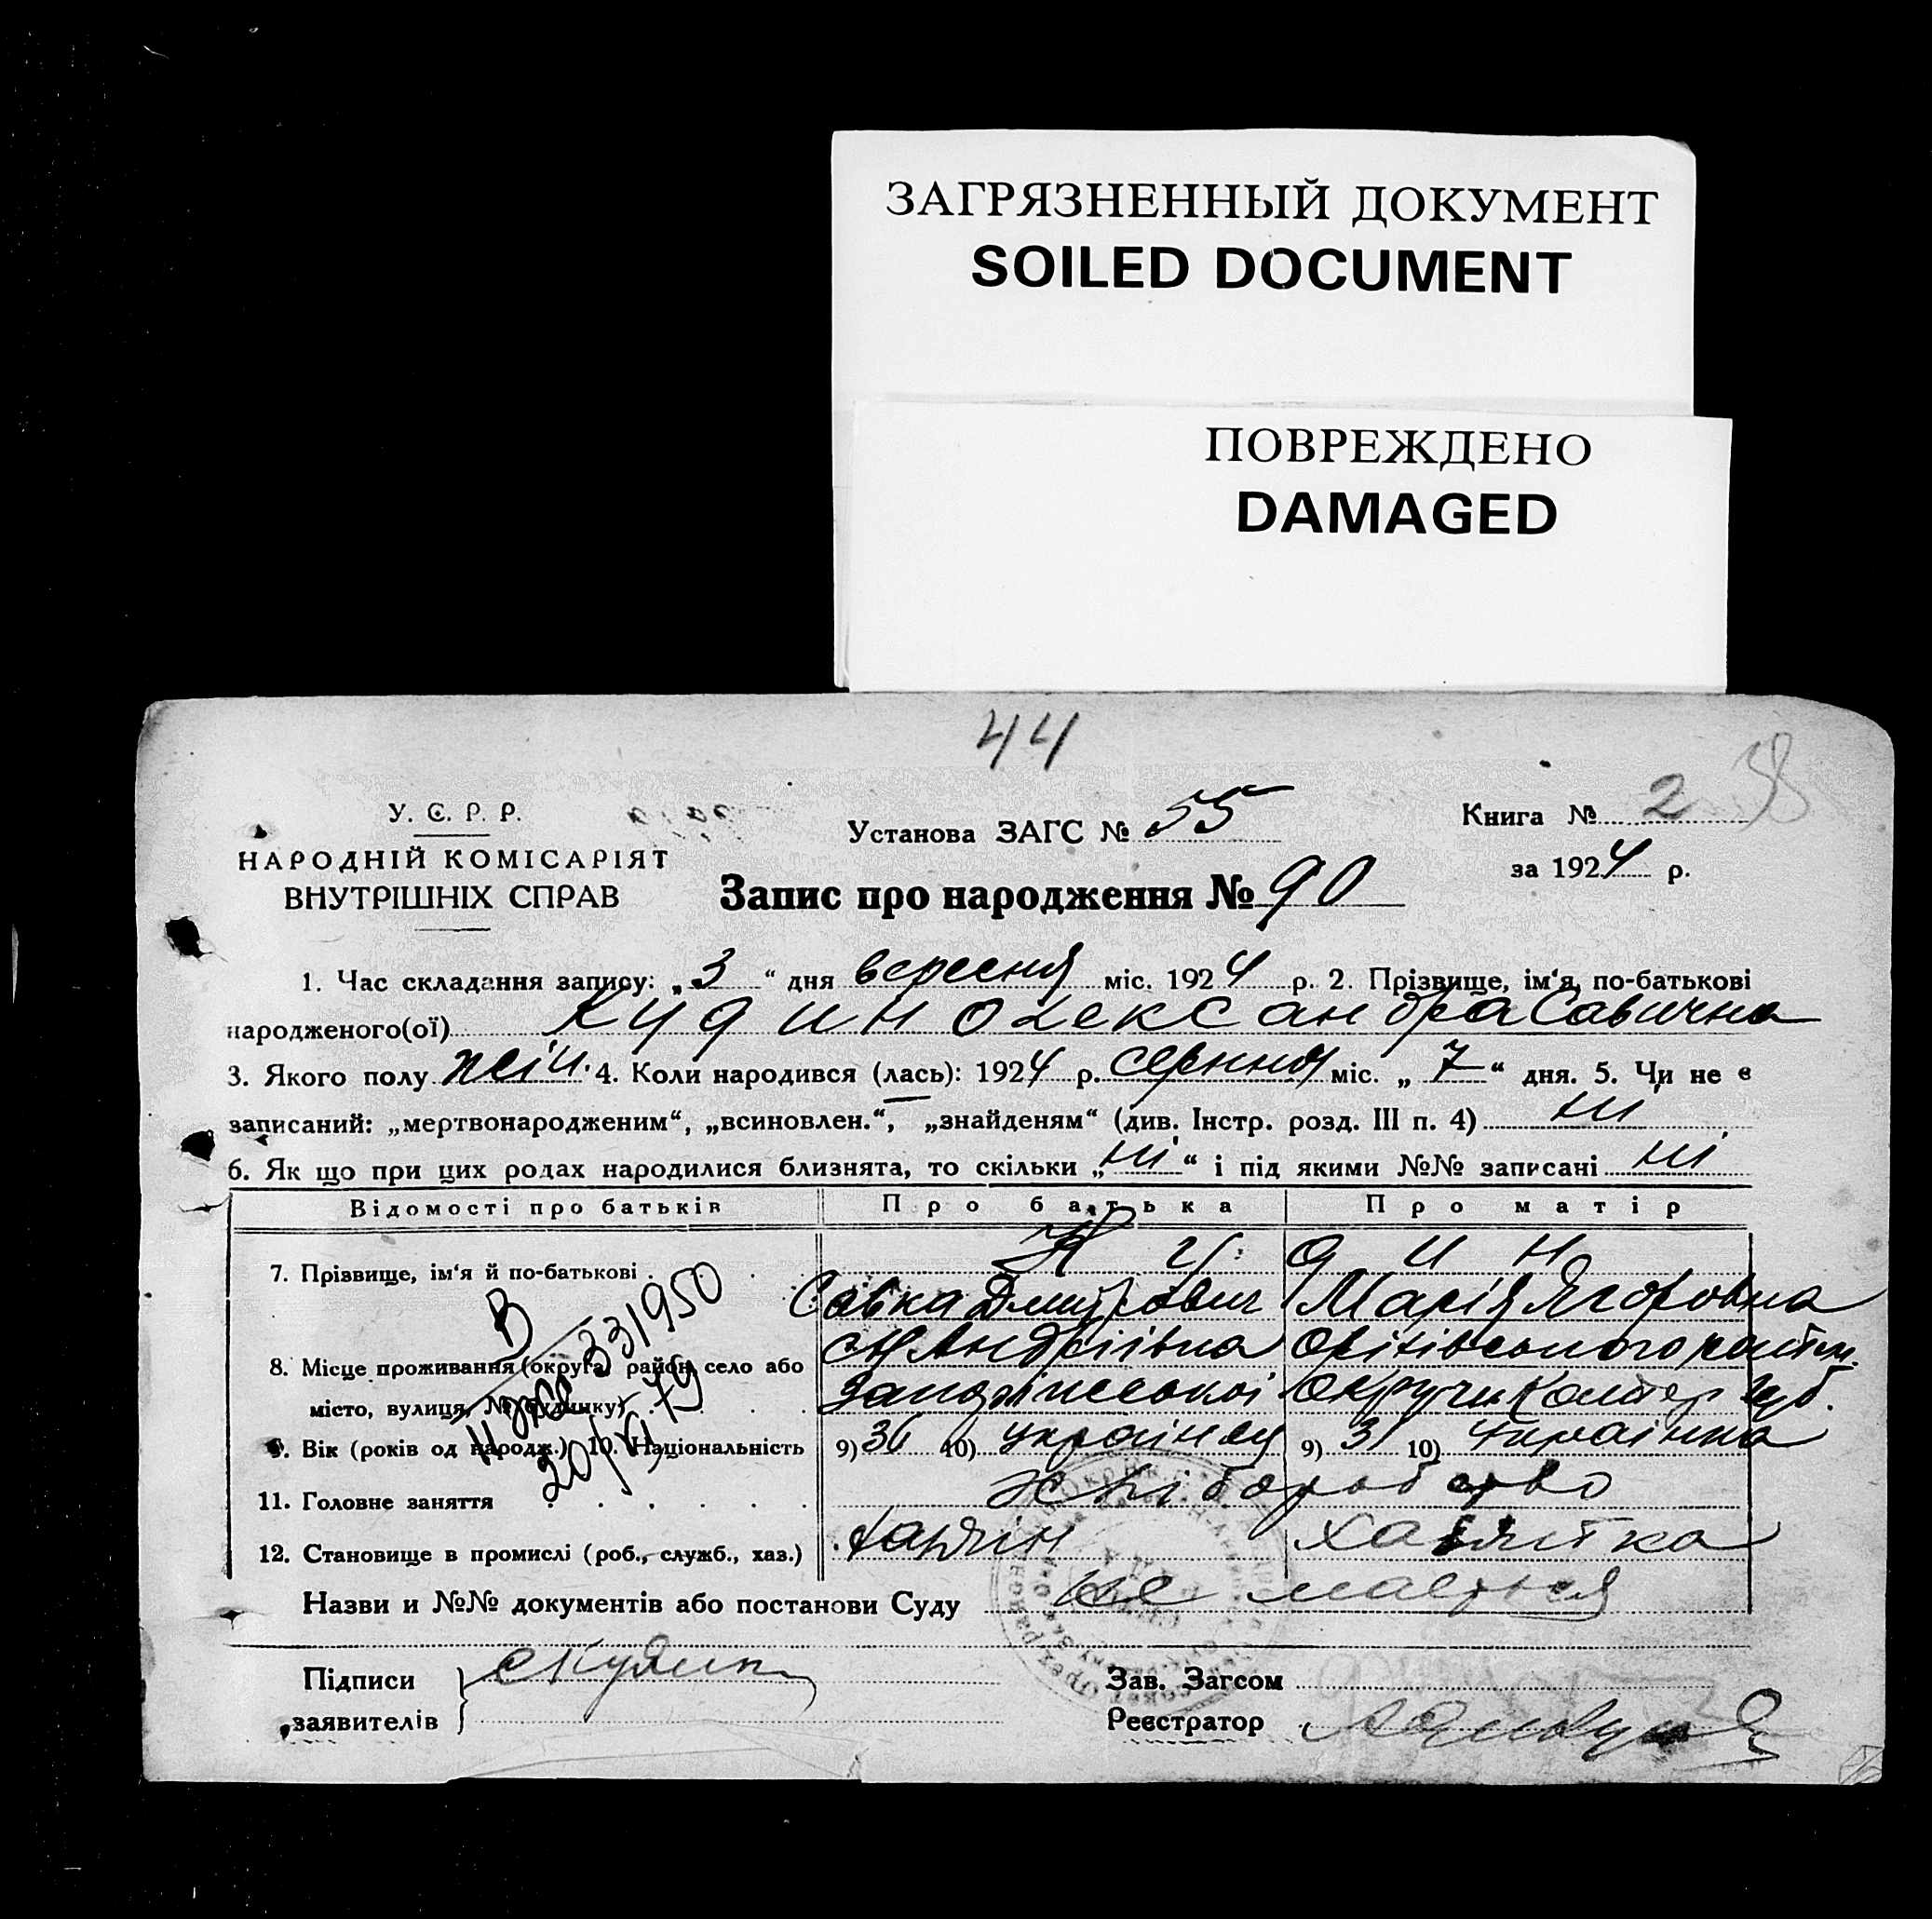 ЗАГРЯЗНЕННЫЙ ДОКУМЕНТ
SOILED DOCUMENT
ПОВРЕЖДЕНО
DAMAGED
44
У. С. Р. Р.
НАРОДНІЙ КОМІСАРІЯТ
ВНУТРІШНІХ СПРАВ
Установа ЗАГС № 55
Книга № 2 38
за 1924 р.
Запис про народження № 90
1. Час складання запису: „3“ дня вересня міс. 1924 р. 2. Прізвище, ім‘я, по-батькові
народженого(ої) Кудин Олександра Савична
3. Якого полу жін. 4. Коли народився (лась): 1924 р. серпня міс. „7“ дня. 5. Чи не є
записаний: „мертвонародженим“, „всиновлен.“, „знайденям“ (див. Інстр. розд. III п. 4) ні
6. Як що при цих родах народилися близнята, то скільки „ні“ і під якими №№ записані ні
Відомості про батьків Про батька Про матір
7. Прізвище, ім‘я й по-батькові Кудин
Савка Дмитрович Марія Ягоровна
8. Місце проживання (округа, район, село або
місто, вулиця, № будинку)
Запорізської Округи
9. Вік (років од народж.) 10. Національність 9) 36 10) українец 9) 31 10) українка
11. Головне заняття хліборобство
12. Становище в промислі (роб., служб., хаз.) хазяїн хазяйка
Назви и №№ документів або постанови Суду не мається
Підписи
заявителів
С Кудин
Зав. Загсом
Реєстратор
В
331950